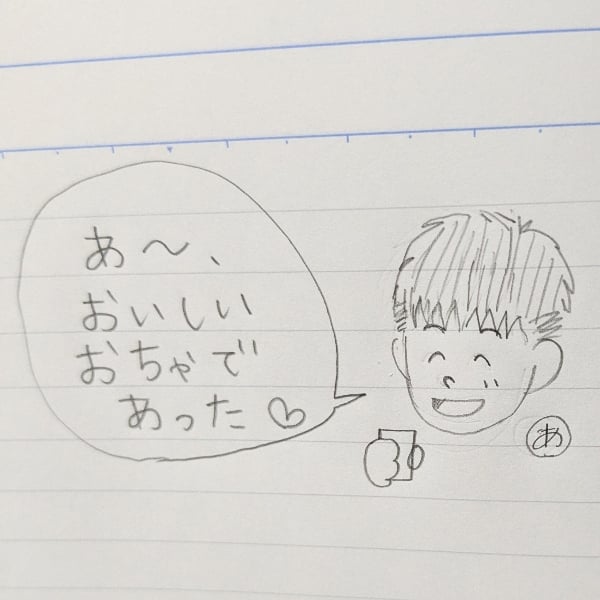 あ〜、
おいしい
おちゃで
あった♡
あ